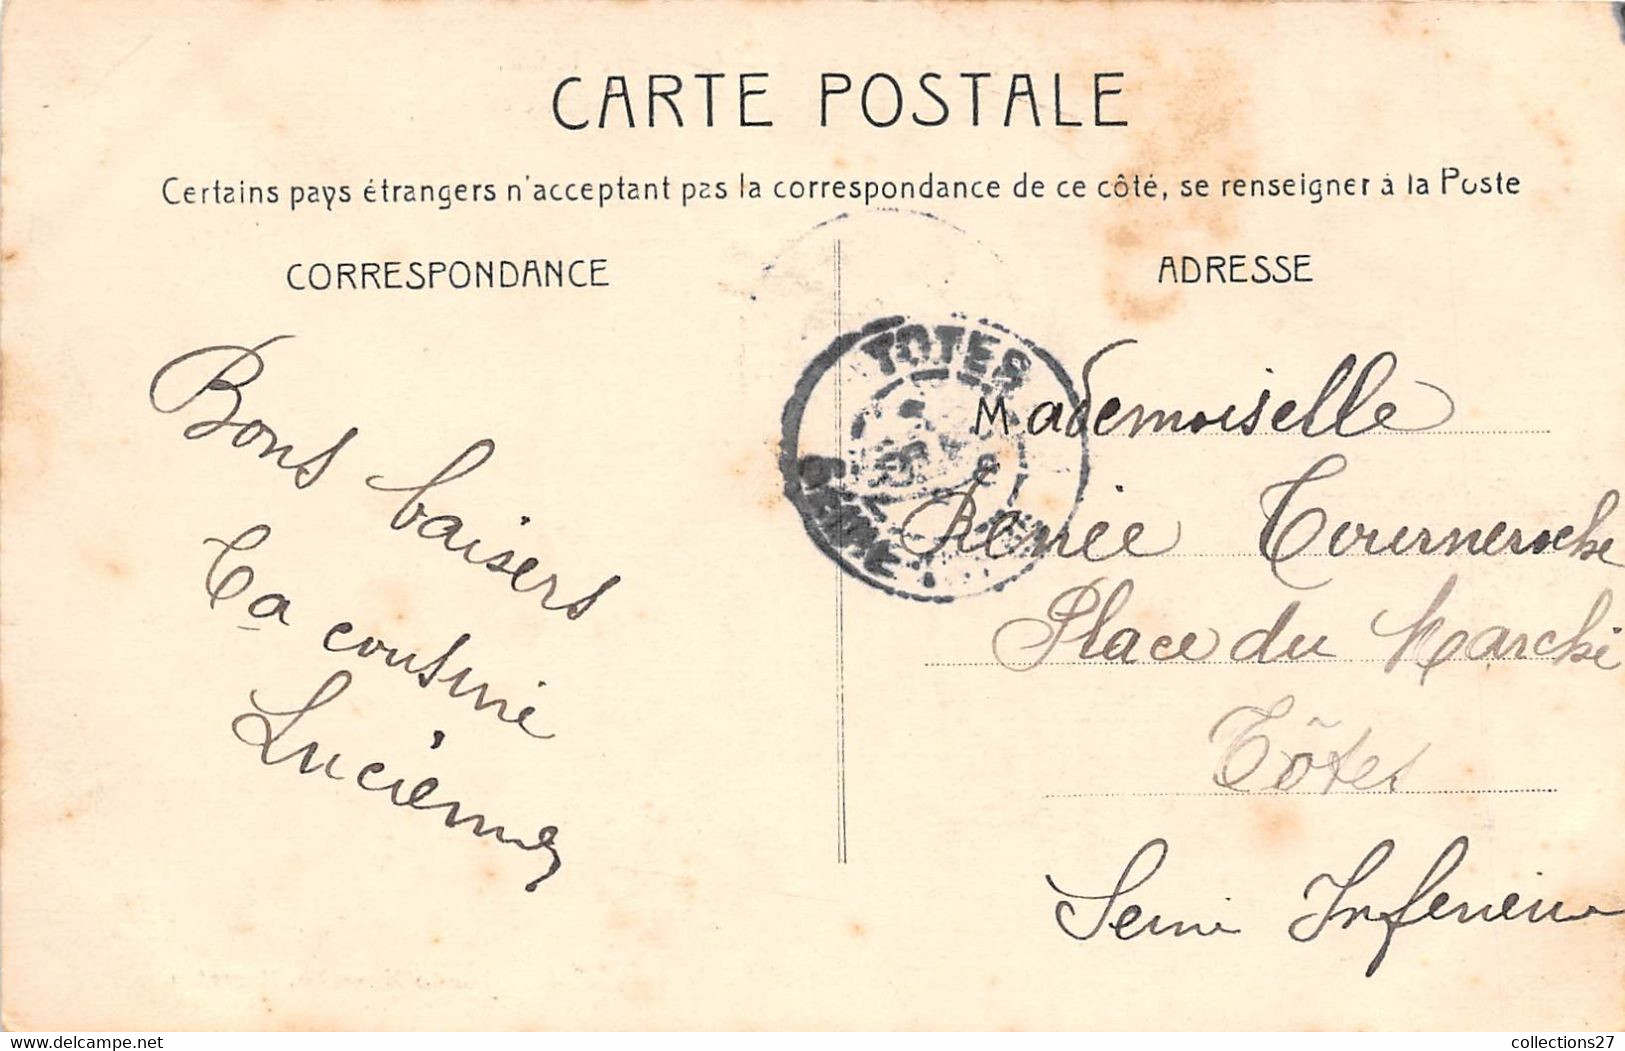 CARTE POSTALE
Certains pays étrangers n'acceptent pas la correspondance de ce côté, se renseigner à la Poste
CORRESPONDANCE
ADRESSE
Bons baisers
Ta cousine
Lucienne
TOTES
SEINE
Mademoiselle
Renée Tourneroche
Place du Marché
Tôtes
Seine Inferieure
collections27